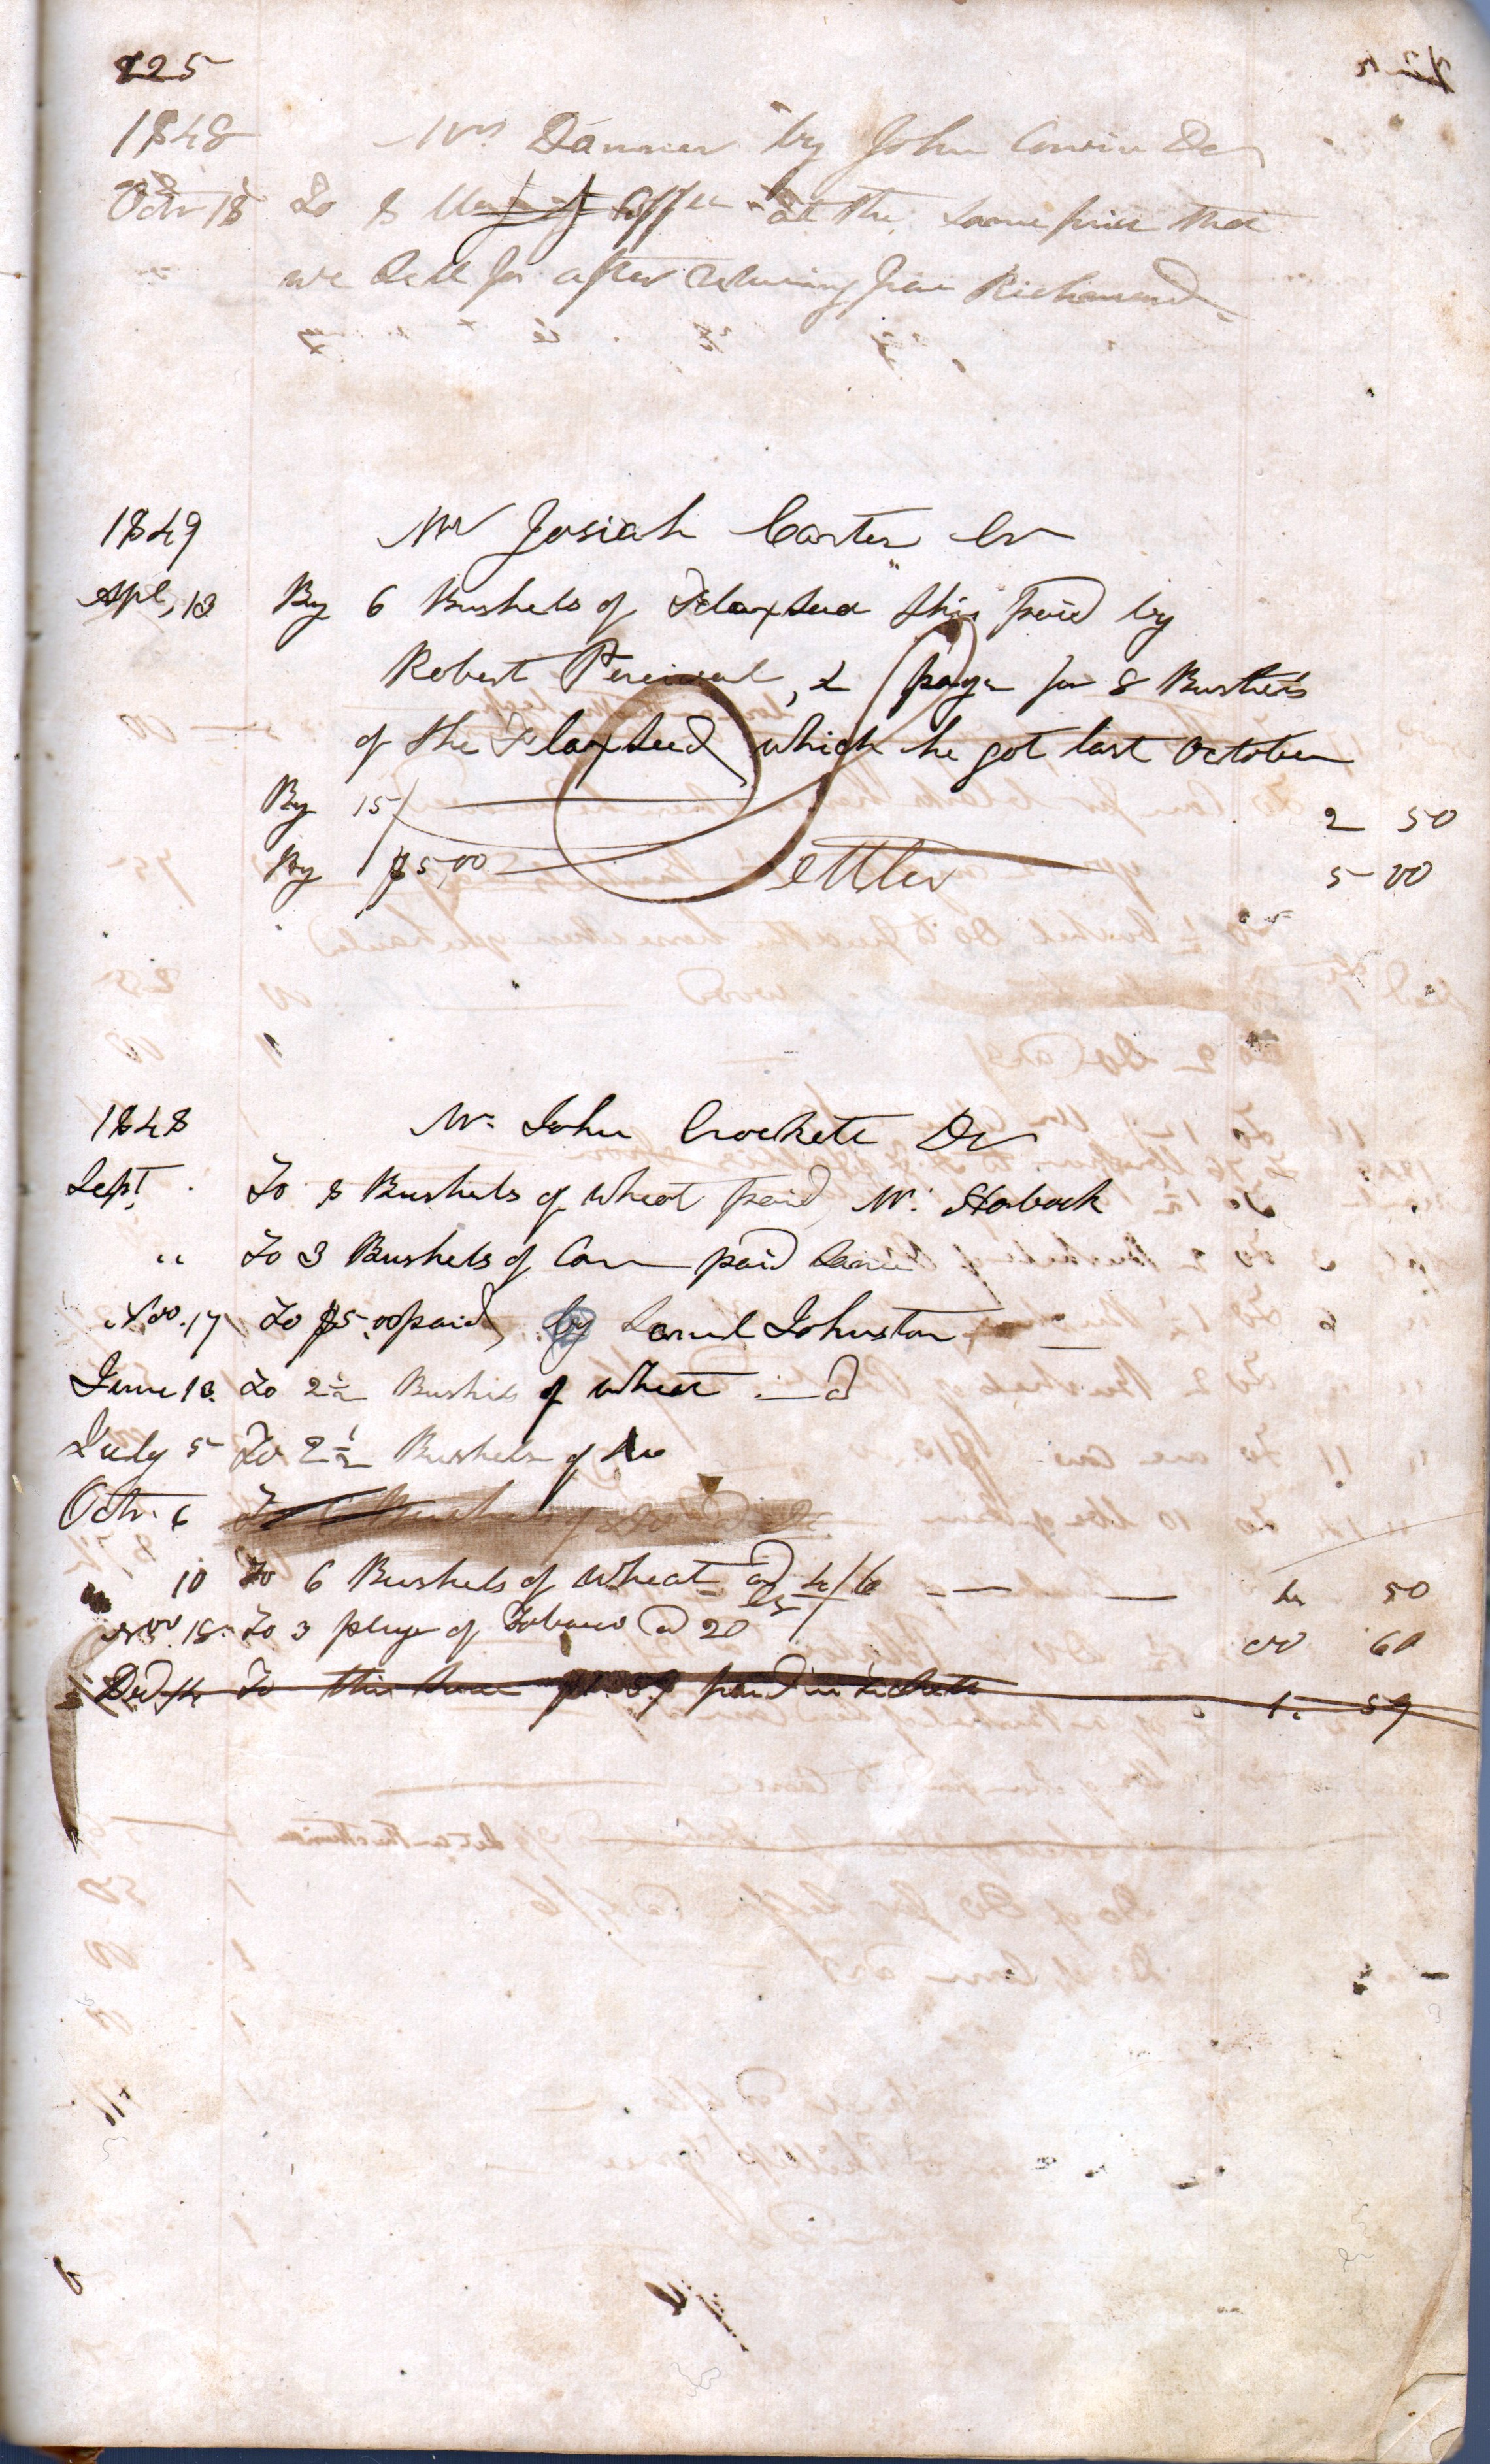 125
1848 Mr. Danner by John Cowin Dr
Octr 18 To 8 of Coffee at the same price that
we sell for after returning from Richmond
1849 Mr Josiah Carter Cr
Apl, 13 By 6 Bushels of Flaxseed this paid by
Robert Percival, & paye for 8 Bushels
of the Flaxseed which he got last October
By 15/ 2 50
By $5,00 Settled 5 00
1848 Mr. John Crockett Dr
Sept. To 8 Bushels of wheat paid Mr. Horbock
" To 3 Bushels of Corn paid Same
Nov. 17 To $5.00 paid by Samul Johnston
June 13. To 2½ Bushels of wheat
July 5 To 2½ Bushels of Do
Octr. 6 To 6 Bushels of Do
10 To 6 Bushels of wheat @ 4/6 4 50
Nov. 18. To 3 plugs of Tobacco @ 20 00 60
Ded. 14 To this Sum $1.59 paid in 1. 59